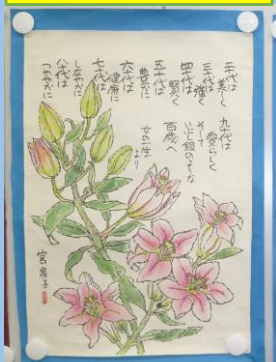 二十代は
美しく
三十代は
強く
四十代は
賢く
五十代は
豊かに
六十代は
健康に
七十代は
しなやかに
八十代は
つややかに
九十代は
愛らしく
そして
いぶし銀のような
百歳へ
女の一生
より